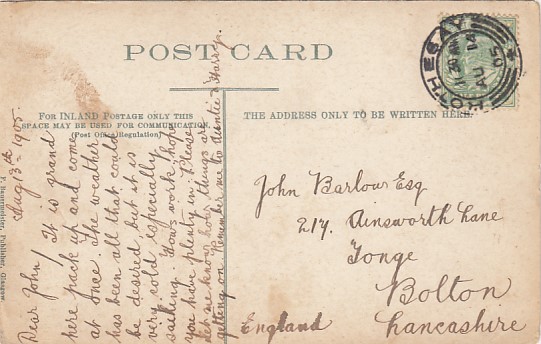 POST CARD
FOR INLAND POSTAGE ONLY THIS
SPACE MAY BE USED FOR COMMUNICATION.
(Post Office Regulation)
THE ADDRESS ONLY TO BE WRITTEN HERE.
ROTHESAY
AU 14
05
Aug 13th 1905.
Dear John/ It is grand
here pack up and come
at once. The weather
has been all that could
be desired but it is
very cold especially
sailing. How's work. I hope
you have plenty in. Please
let me know how things are
getting on. Remember me to Auntie & Harry.
John Barlow Esq
217. Ainsworth Lane
Tonge
Bolton
England Lancashire
Publisher, Glasgow